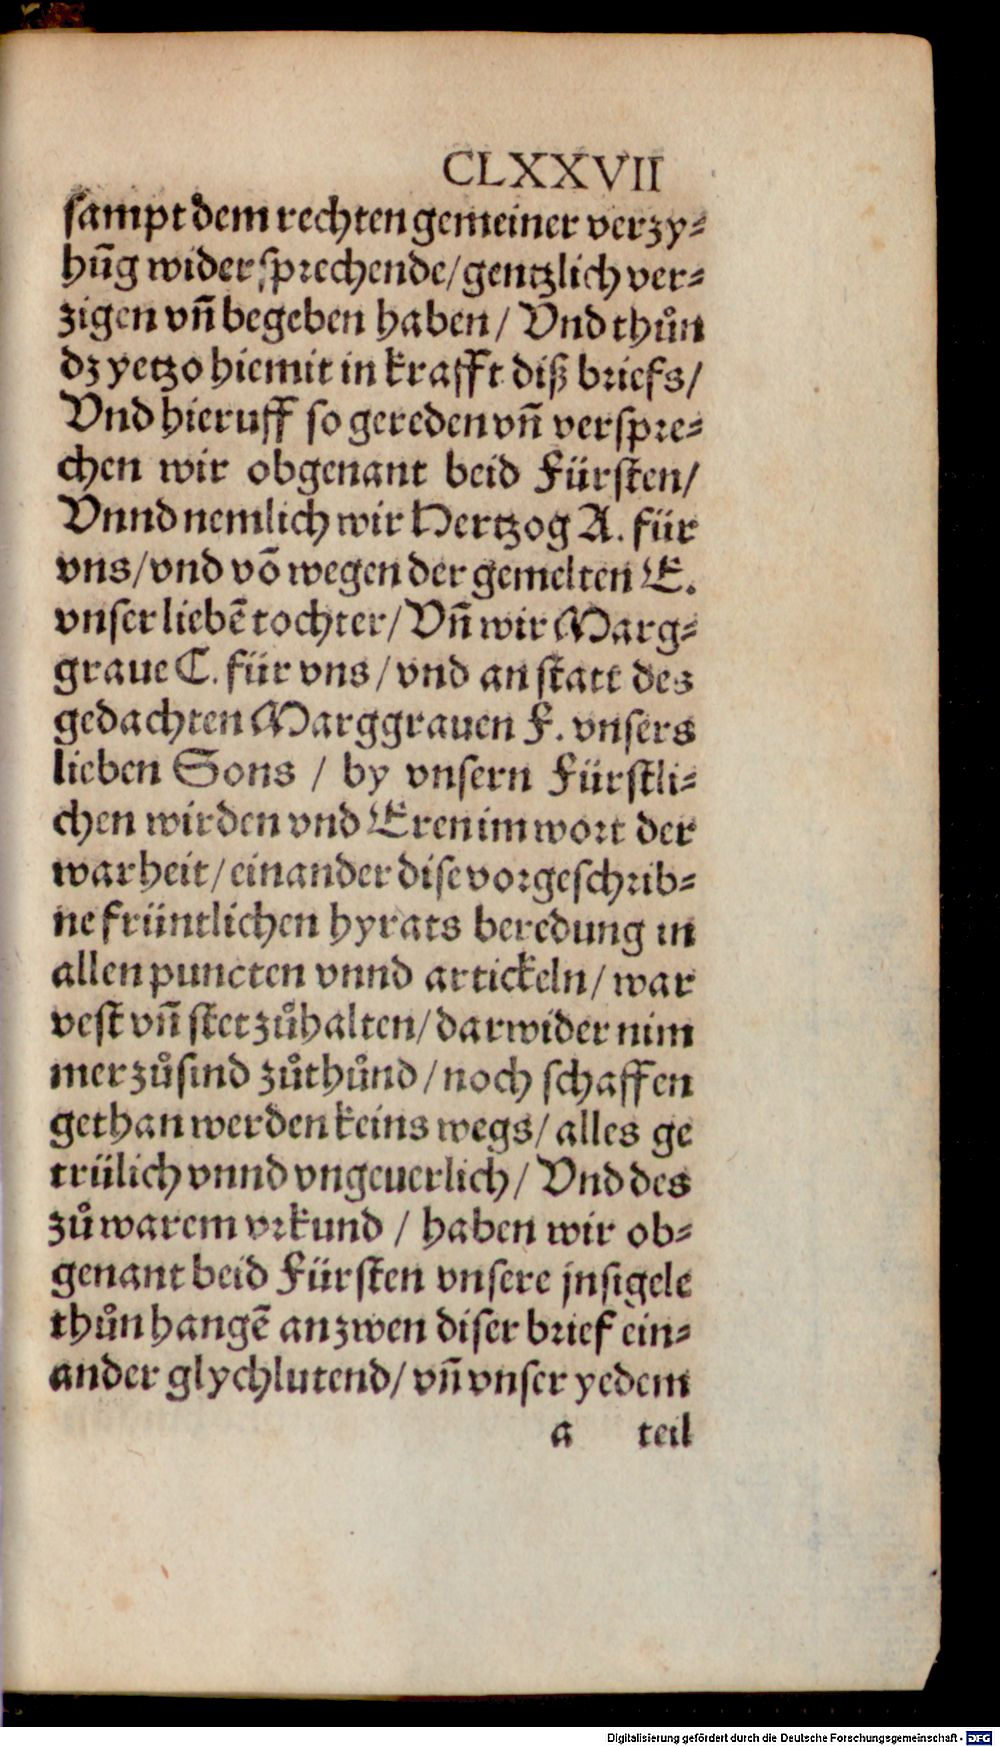 CLXXVII
sampt dem rechten gemeiner verzy⸗
hūg wider sprechende/ gentzlich ver⸗
zigen vñ begeben haben/ Vnd thůn
dz yetzo hiemit in krafft diß briefs/
Vnd hieruff so gereden vñ verspre⸗
chen wir obgenant beid Fürsten/
Vnnd nemlich wir Hertzog A. für
vns/ vnd vō wegen der gemelten E.
vnser liebē tochter/ Vñ wir Marg⸗
graue C. für vns/ vnd an statt des
gedachten Marggrauen F. vnsers
lieben Sons / by vnsern Fürstli⸗
chen wirden vnd Eren im wort der
warheit/ einander dise vorgeschrib⸗
ne früntlichen hyrats beredung in
allen puncten vnnd artickeln/ war
vest vñ stet zůhalten/ darwider nim
mer zůsind zůthůnd/ noch schaffen
gethan werden keins wegs/ alles ge
trülich vnnd vngeuerlich/ Vnd des
zů warem vrkund / haben wir ob⸗
genant beid Fürsten vnsere jnsigele
thůn hangē an zwen diser brief ein⸗
ander glychlutend/ vñ vnser yedem
a teil
Digitalisierung gefördert durch die Deutsche Forschungsgemeinschaft - DFG